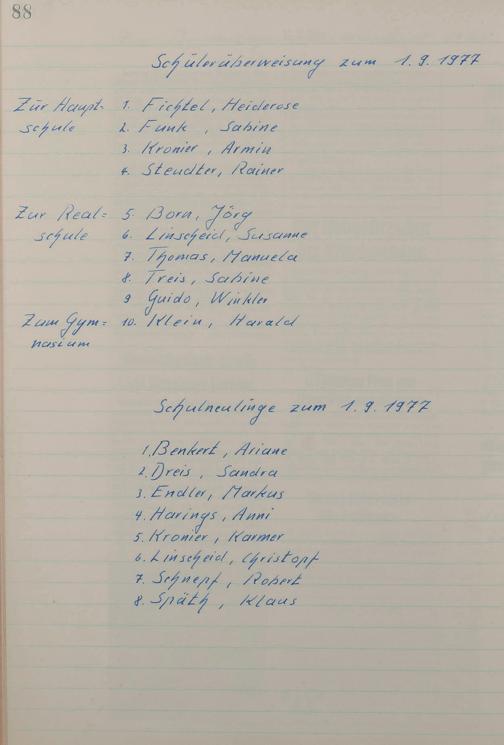 88
Schülerüberweisung zum 1.9.1977
Zur Haupt= 1. Fichtel, Heiderose
schule 2. Funk, Sabine
3. Kronier, Armin
4. Steudter, Rainer
Zur Real= 5. Born, Jörg
schule 6. Linscheid, Susanne
7. Thomas, Manuela
8. Treis, Sabine
9 Guido, Winkler
Zum Gym= 10. Klein, Harald
nasium
Schulneulinge zum 1.9.1977
1. Benkert, Ariane
2. Dreis, Sandra
3. Endler, Markus
4. Harings, Anni
5. Kronier, Karmer
6. Linscheid, Christopf
7. Schnepf, Robert
8. Späth, Klaus